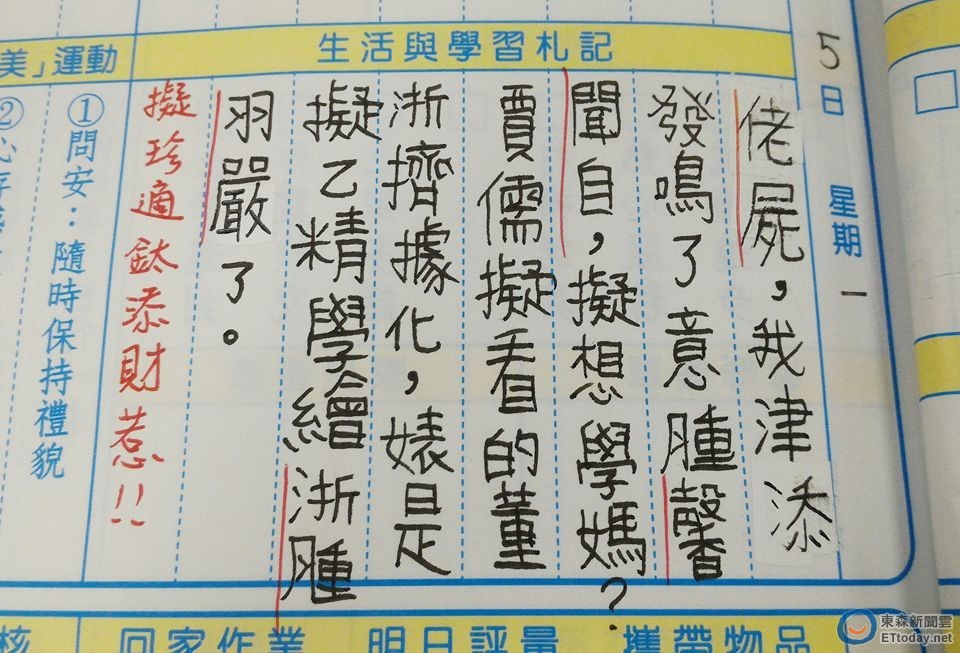 5日 星期一
生活與學習札記
佬屍，我津添
發鳴了意腫馨
聞自，擬想學媽？
賈儒擬看的董
浙擠據化，婊是
擬乙精學繪浙腫
羽嚴了。
擬珍適鈦添財惹!!
美」運動
①問安：隨時保持禮貌
②心存
核
回家作業
明日評量
攜帶物品
東森新聞雲
ETtoday.net